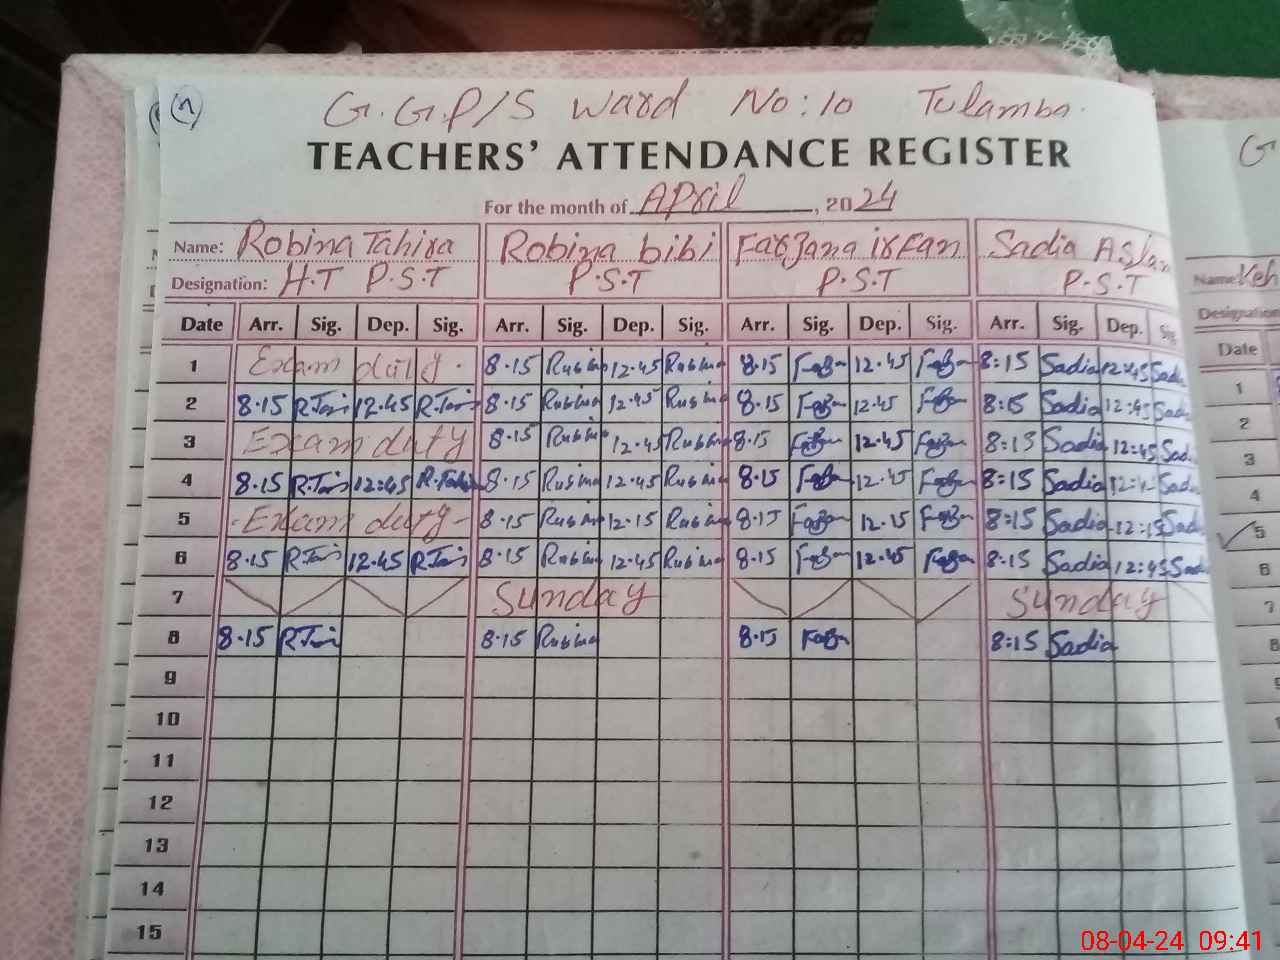 G.G.P/S Ward No:10 Tulamba.
TEACHERS' ATTENDANCE REGISTER
For the month of April, 2024
Name: Robina Tahira Robina bibi Farzana irfan Sadia Aslam
Designation: H.T P.S.T P.S.T P.S.T P.S.T
Date Arr. Sig. Dep. Sig. Arr. Sig. Dep. Sig. Arr. Sig. Dep. Sig. Arr. Sig. Dep. Sig.
1 Exam duty. 8.15 Rubina 12.45 Rubina 8.15 12.45 8:15 Sadia 12:45 Sadia
2 8.15 R.Tair 12.45 R.Tair 8.15 Rubina 12.45 Rubina 8.15 12.45 8:15 Sadia 12:45 Sadia
3 Exam duty 8.15 Rubina 12.45 Rubina 8.15 12.45 8:15 Sadia 12:45 Sadia
4 8.15 R.Tair 12:45 8.15 Rubina 12.45 Rubina 8.15 12.45 8:15 Sadia Sadia
5 Exam duty 8.15 Rubina 12.15 Rubina 8.15 12.15 8:15 Sadia 12:15 Sadia
6 8.15 R.Tair 12.45 R.Tair 8.15 Rubina 12.45 Rubina 8.15 12.45 8:15 Sadia 12:45 Sadia
7 Sunday Sunday
8 8.15 R.Tair 8.15 Rubina 8.15 8:15 Sadia
9
10
11
12
13
14
15
G
Name: Keh
Designation
Date
1
2
3
4
5
6
7
8
08-04-24 09:41